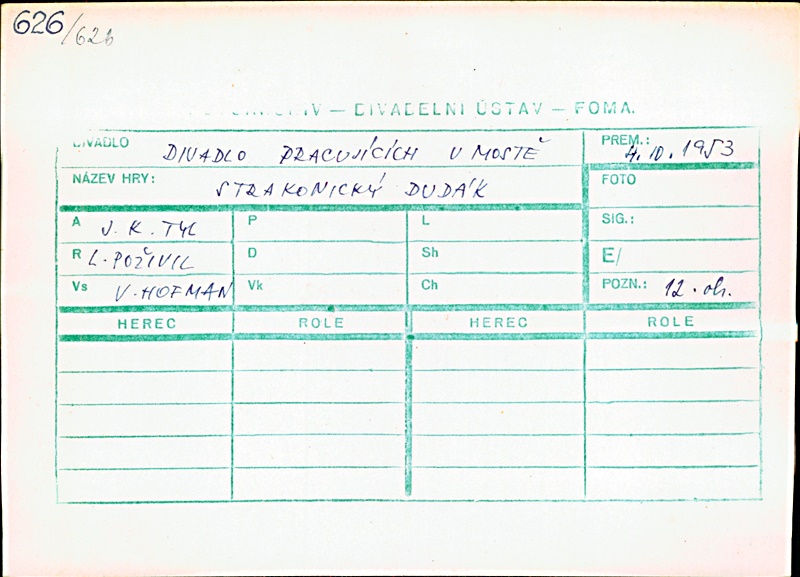 626/626
IV — DIVADELNÍ ÚSTAV — FOMA.
DIVADLO DIVADLO PRACUJÍCÍCH V MOSTĚ PREM.: 4.10.1953
NÁZEV HRY: STRAKONICKÝ DUDÁK FOTO
A J. K. TYL P L SIG.:
R L. POŽIVIL D Sh E/
Vs V. HOFMAN Vk Ch POZN.: 12. ob.
HEREC ROLE HEREC ROLE